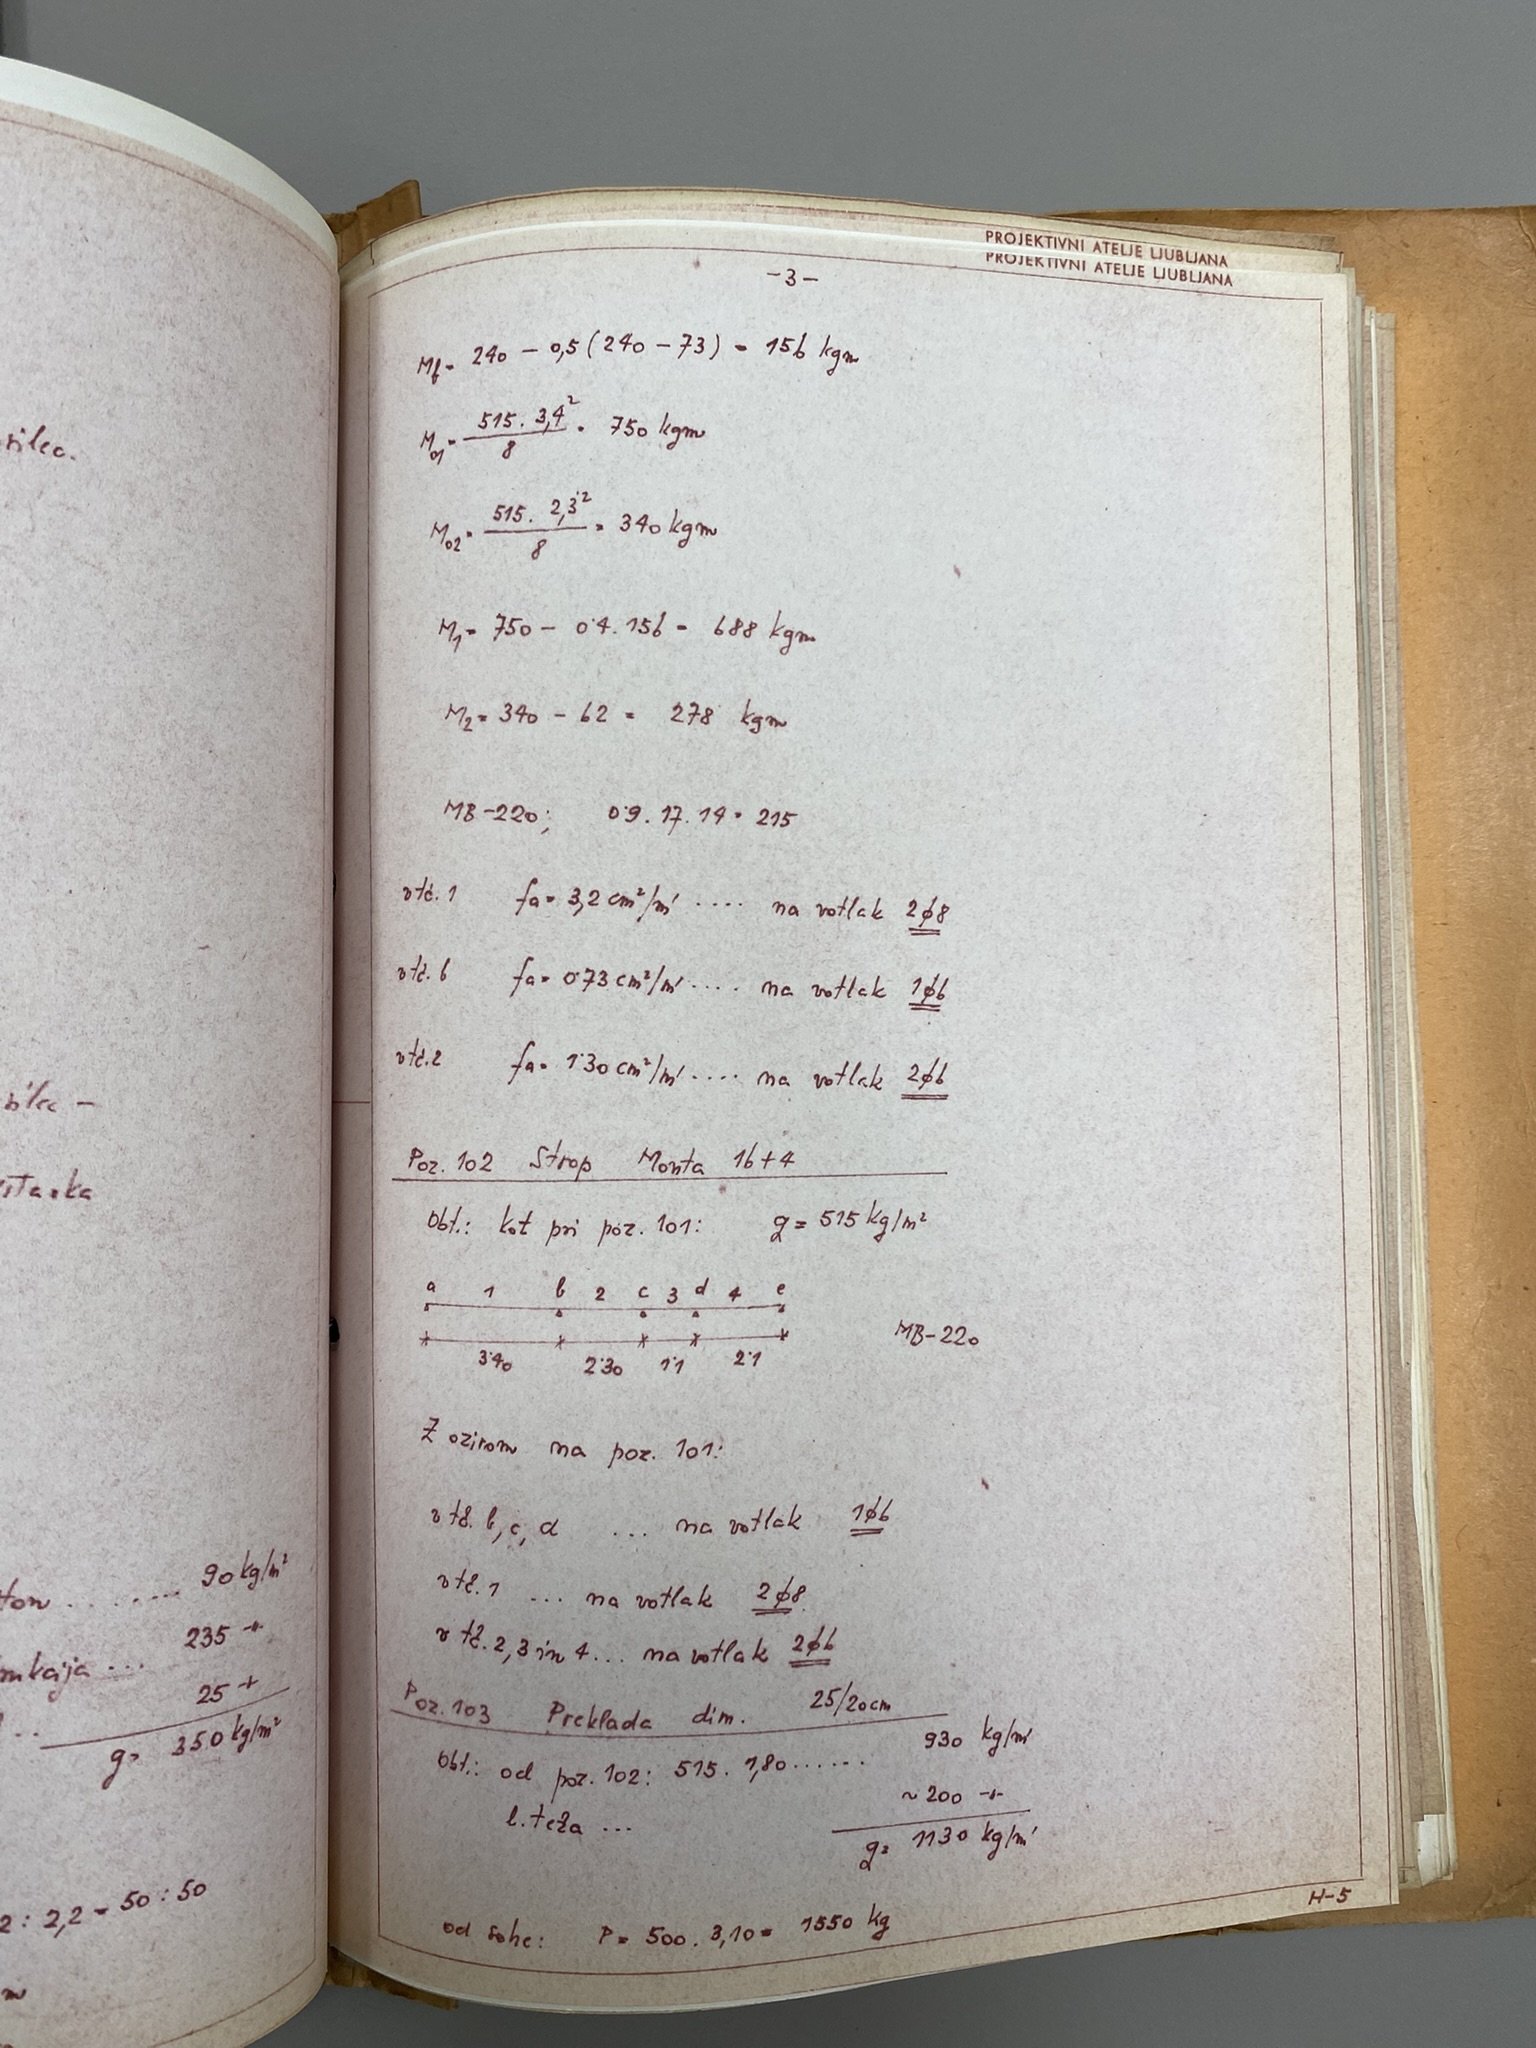 silca.
silca -
90 kg/m²
235 -"-
25 -"-
g= 350 kg/m²
2 : 2,2 = 50 : 50
PROJEKTIVNI ATELJE LJUBLJANA
PROJEKTIVNI ATELJE LJUBLJANA
-3-
Mb= 240 - 0,5 (240 - 73) = 156 kgm
M01= 515. 3,4² / 8 = 750 kgm
M02= 515. 2,3² / 8 = 340 kgm
M1= 750 - 0.4. 156 = 688 kgm
M2= 340 - 62 = 278 kgm
MB-220; 0.9. 17. 14 = 215
v tč. 1 fa= 3,2 cm²/m' .... na votlak 2ϕ8
v tč. b fa= 0.73 cm²/m' .... na votlak 1ϕ6
v tč. 2 fa= 1.30 cm²/m' .... na votlak 2ϕ6
Poz. 102 Strop Monta 16+4
Obt.: kot pri poz. 101: g = 515 kg/m²
a 1 b 2 c 3 d 4 e
MB-220
3.40 2.30 1.1 2.1
Z ozirom na poz. 101:
v tč. b, c, d ... na votlak 1ϕ6
v tč. 1 ... na votlak 2ϕ8
v tč. 2, 3 in 4 ... na votlak 2ϕ6
Poz. 103 Preklada dim. 25/20cm
Obt.: od poz. 102: 515. 1,80 ...... 930 kg/m'
l. teža ... ~ 200 -"-
g= 1130 kg/m'
od sohe: P= 500. 3,10= 1550 kg
H-5